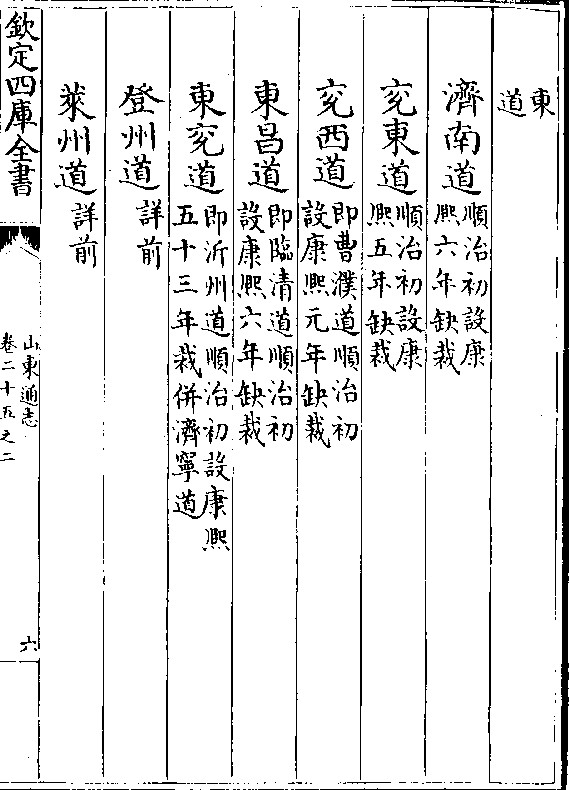 東
道
濟南道 順治初設康
熙六年缺裁
兖東道 順治初設康
熙五年缺裁
兖西道 即曹濮道順治初
設康熙元年缺裁
東昌道 即臨清道順治初
設康熙六年缺裁
東兖道 即沂州道順治初設康熙
五十三年裁併濟寧道
登州道 詳前
萊州道 詳前
欽定四庫全書
山東通志
卷二十五之二
六